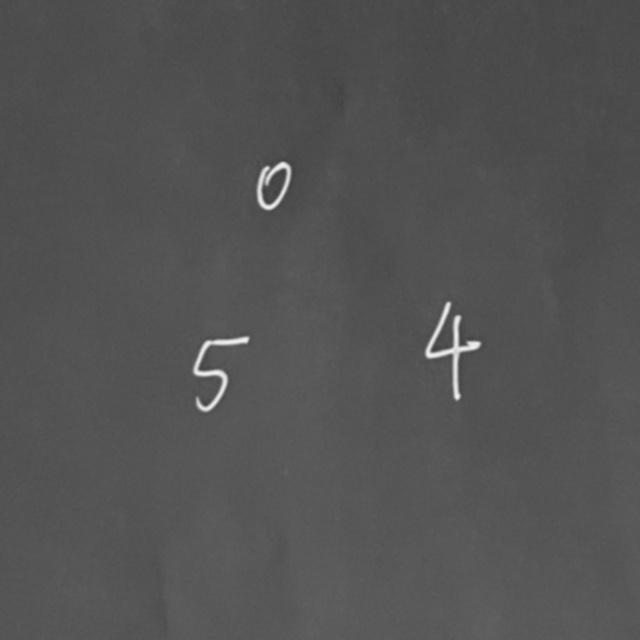 0
5 4